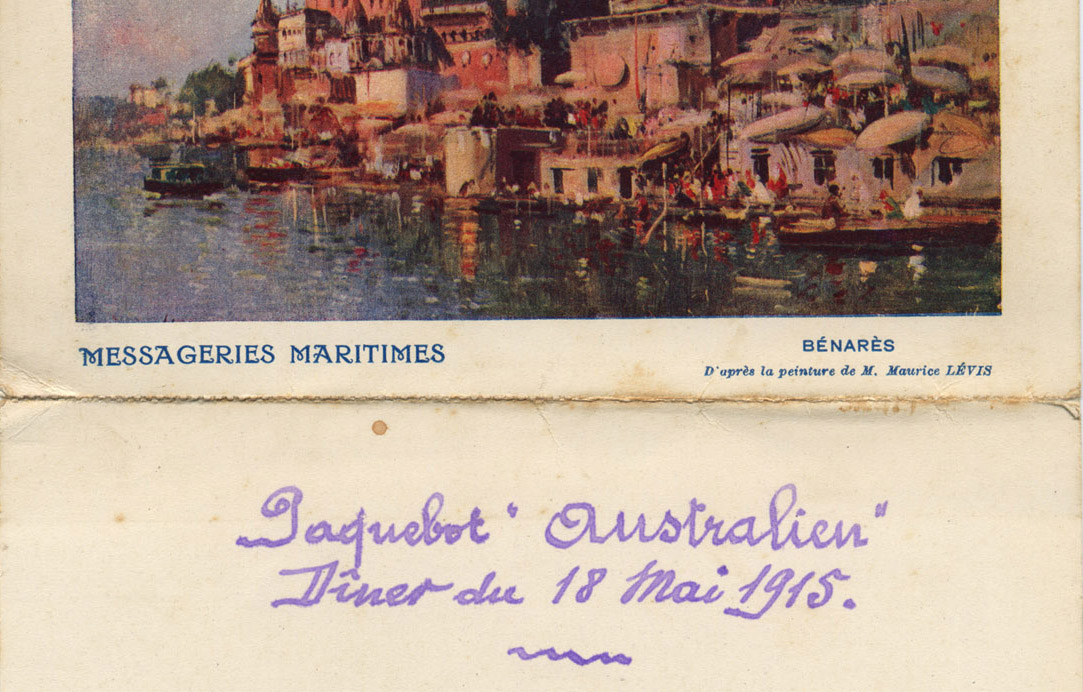 MESSAGERIES MARITIMES
BÉNARÈS
D'après la peinture de M. Maurice LÉVIS
Paquebot "Australien"
Dîner du 18 Mai 1915.